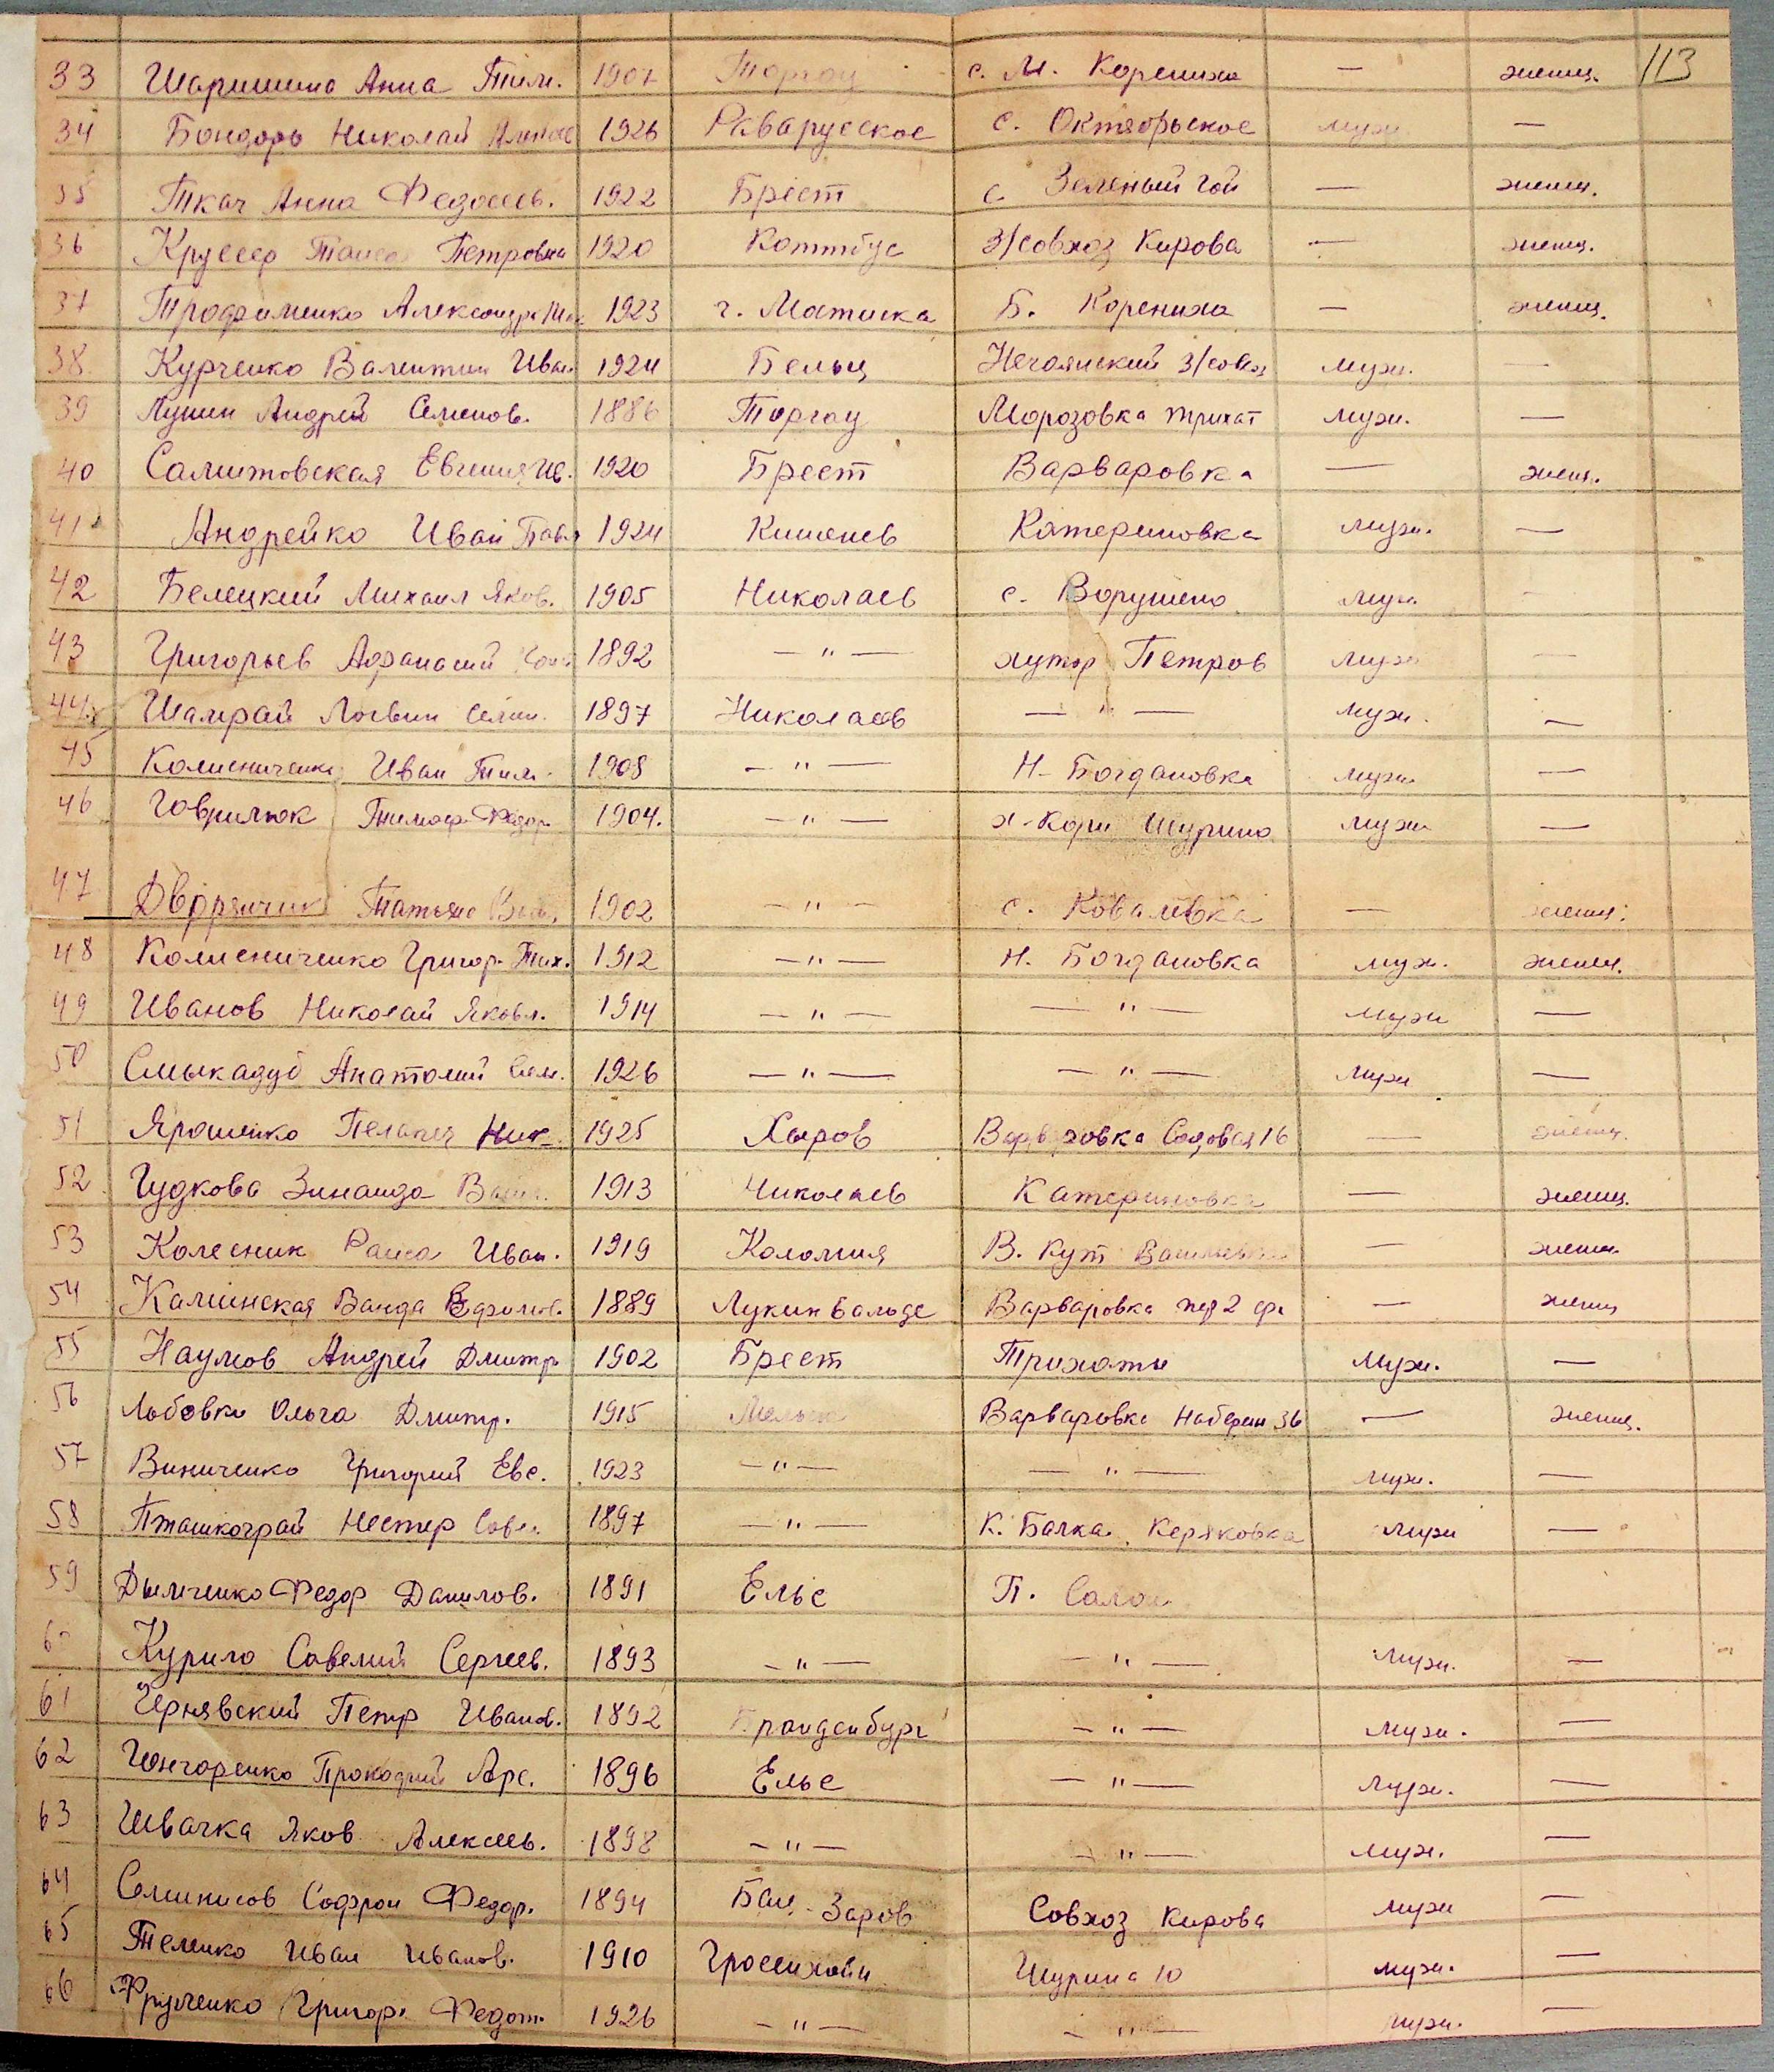 113
33 Шаришина Анна Тим. 1907 Торгау с. М. Корениха — женщ.
34 Бондарь Николай 1926 Раварусское с. Октябрьское муж —
35 Ткач Анна Федосеев. 1922 Брест с Зеленый Гой — женщ.
36 Круссер Таиса Петровна 1920 Коттбус З/совхоз Кирова — женщ.
37 Трофименко Александра 1923 г. Матиска Б. Корениха — женщ.
38 Курченко Валентин Иван 1924 Бельц Нечаянский З/совхоз муж. —
39 Лунин Андрей Семенов. 1886 Торгау Морозовка Трихат муж. —
40 Самитовская Евгения Ив. 1920 Брест Варваровка — женщ.
41 Андрейко Иван Павл 1924 Кишенев Катериновка муж. —
42 Белецкий Михаил Яков. 1905 Николаев с. Ворушено муж. —
43 Григорьев Афанасий 1892 — " — хутор Петров муж —
44 Шамрай Логвин Семен. 1897 Николаев — " — муж. —
45 Колисниченко Иван Тим. 1908 — " — Н-Богдановка муж. —
46 Гаврилюк Тимоф. Федор. 1904. — " — х-Кори Шурино муж —
47 Дворянчик Татьяна Вас. 1902 — " — с. Ковалевка — женщ.
48 Колисниченко Григор. Тих. 1912 — " — Н. Богдановка муж. женщ.
49 Иванов Николай Яковл. 1914 — " — — " — муж —
50 Смыкадуб Анатолий Сем. 1926 — " — — " — муж —
51 Ярошенко Пелагея Ник. 1925 Хыров Варваровка Садовая 16 — женщ.
52 Гудкова Зинаида Васил. 1913 Николаев Катериновка — женщ.
53 Колесник Раиса Иван. 1919 Коломия В. Кут — женщ.
54 Калинская Ванда Ефимов. 1889 Лукинвальде Варваровка пер 2 фр — женщ
55 Наумов Андрей Дмитр 1902 Брест Трихаты муж. —
56 Любовка Ольга Дмитр. 1915 Мельск Варваровка Набереж 36 — женщ.
57 Виниченко Григорий Евс. 1923 — " — — " — муж. —
58 Пташкограй Нестер Савел. 1897 — " — К. Балка Керяковка муж —
59 Дымченко Федор Данилов. 1891 Ельс П. Сало
60 Курило Савелий Сергеев. 1893 — " — — " — муж. —
61 Чернявский Петр Иванов. 1892 Бранденбург — " — муж. —
62 Гончаренко Прокофий Арс. 1896 Ельс — " — муж. —
63 Швачка Яков Алексеев. 1898 — " — — " — муж. —
64 Семинисов Софрон Федор. 1894 Бац-Заров Совхоз Кирова муж —
65 Теленко Иван Иванов. 1910 Гроссихайн Шурина 10 муж. —
66 Фрулченко Григор. Федот. 1926 — " — — " — муж. —